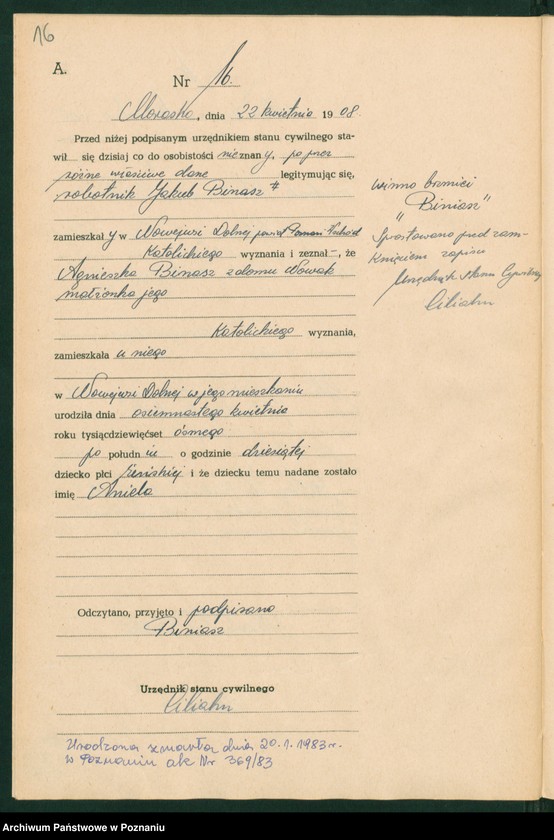 16
A.
Nr 16.
Morasko, dnia 22 kwietnia 1908
Przed niżej podpisanym urzędnikiem stanu cywilnego sta-
wił się dzisiaj co do osobistości nieznany, poprzez
różne właściwe dane legitymując się,
robotnik Jakub Binasz #
zamieszkały w Nowejwsi Dolnej powiat Poznań Zachód
Katolickiego wyznania i zeznał –, że
Agnieszka Binasz z domu Nowak
małżonka jego
Katolickiego wyznania,
zamieszkała u niego
w Nowejwsi Dolnej w jego mieszkaniu
urodziła dnia osiemnastego kwietnia
roku tysiącdziewięćset ósmego
po południu o godzinie dziesiątej
dziecko płci żeńskiej i że dziecku temu nadane zostało
imię Aniela
Odczytano, przyjęto i podpisano
Biniasz
Urzędnik stanu cywilnego
Urodzona zmarła dnia 20.1.1983 r.
w Poznaniu akt Nr 369/83
# winno brzmieć
"Biniasz"
Sprostowano przed zam-
knięciem zapisu
Urzędnik Stanu Cywilnego
Archiwum Państwowe w Poznaniu